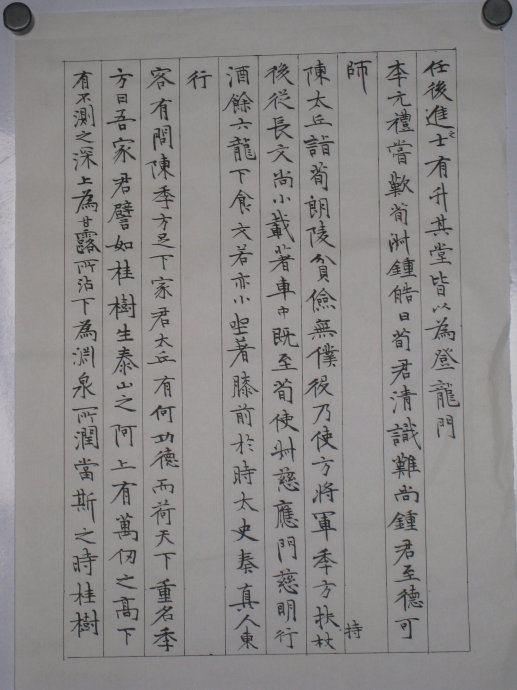 任後進之士有升其堂皆以為登龍門
李元禮嘗歎荀淑鍾皓曰荀君清識難尚鍾君至德可
師
持
陳太丘詣荀朗陵貧儉無僕役乃使方將軍季方扶杖
後從長文尚小載著車中既至荀使叔慈應門慈明行
酒餘六龍下食文若亦小坐著膝前於時太史奏真人東
行
客有問陳季方足下家君太丘有何功德而荷天下重名季
方曰吾家君譬如桂樹生泰山之阿上有萬仞之高下
有不測之深上為甘露所沾下為淵泉所潤當斯之時桂樹